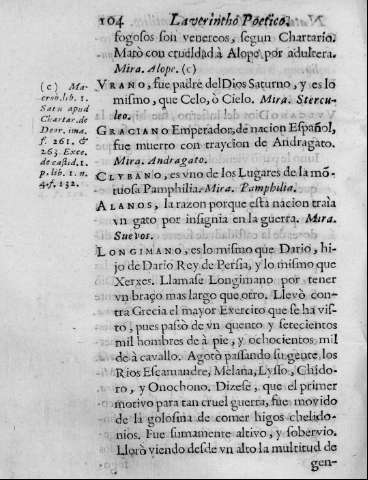 104 Laverinthó Poético.
fogosos son venereos, segun Chartario.
Matò con crueldad à Alope por adultera.
Mira. Alope. (c)
VRANO, fue padre del Dios Saturno, y es lo
mismo, que Celo, ò Cielo. Mira. Stercu-
leo.
GRACIANO Emperador, de nacion Español,
fue muerto con trayción de Andragato.
Mira. Andragato.
CLYBANO, es vno de los Lugares de la mõ-
tuosa Pamphilia. Mira. Pamphilia.
ALANOS, la razon porque esta nacion traìa
vn gato por insignia en la guerra. Mira.
Suevos.
LONGIMANO, es lo mismo que Dario, hi-
jo de Dario Rey de Persia, y lo mismo que
Xerxes. Llamase Longimano por tener
vn braço mas largo que otro. Llevò con-
tra Grecia el mayor Exercito que se ha vis-
to, pues passò de vn quento y setecientos
mil hombres de à pie, y ochocientos mil
de à cavallo. Agotò passando su gente los
Rios Escamandre, Melana, Lysso, Chido-
ro, y Onochono. Dizese, que el primer
motivo para tan cruel guerra, fue movido
de la golosina de comer higos chelido-
nios. Fue sumamente altivo, y sobervio.
Llorò viendo desde vn alto la multitud de
gen-
(c) Ma-
crob. lib. 1.
Satu apud
Chartar. de
Deor. ima.
f. 261. &
263. Exce.
de castid. 1.
p. lib. 1. n.
4. f. 132.